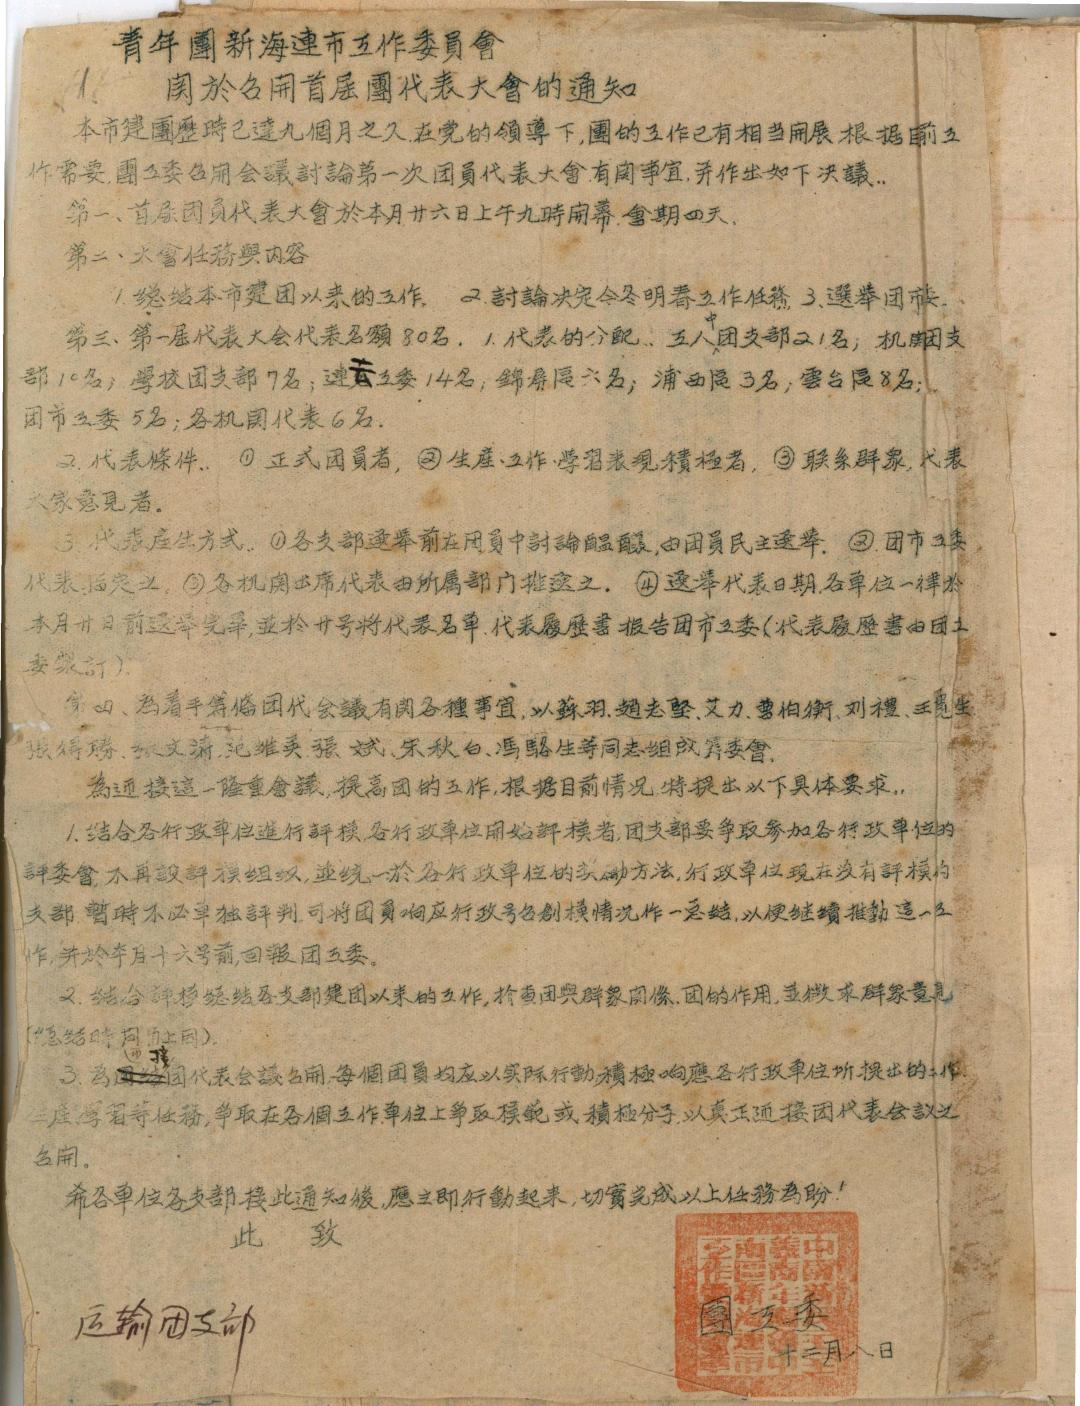 青年團新海連市工作委員會
関於召開首屆團代表大會的通知
本市建團歷時已達九個月之久,在党的領導下,團的工作已有相当開展,根据目前工
作需要,團工委召開会議討論第一次团員代表大會有関事宜,并作出如下决議..
第一、首屆团員代表大會於本月廿六日上午九時開幕.會期四天.
第二、大會任務與内容
1.總结本市建团以来的工作. 2.討論决定今冬明春工作任務 3.選举团市委.
第三、第一屆代表大会代表名額80名. 1.代表的分配.. 工人中团支部21名; 机関团支
部10名; 學校团支部7名; 連云工委14名; 錦屏區六名; 浦西區3名; 雲台區8名;
团市工委5名; 各机関代表6名.
2.代表條件.. ①正式团員者, ②生産.工作.學習表現積極者, ③联系群衆,代表
大家意見者。
3.代表産生方式.. ①各支部選举前在团員中討論醞釀,由团員民主選举. ②团市工委
代表,指定之. ③各机関出席代表由所属部门推選之. ④選举代表日期,各單位一律於
本月廿日前選举完畢,並於廿号將代表名单.代表履歷書报告团市工委(代表履歷書由团工
委製訂).
第四、為着手籌備团代会議有関各種事宜,以蘇羽.趙志堅、艾力、曹伯衡、刘禮、王
張得勝、張文清,范維英、張斌、宋秋白、馮駱生等同志組成籌委會.
為迎接這一隆重會議,提高团的工作,根据目前情况,特提出以下具体要求..
1.结合各行政單位進行評模,各行政單位開始評模者,团支部要争取参加各行政單位的
評委會,不再設評模组织,並統一於各行政單位的奖励方法,行政單位現在没有評模的
支部,暫時不必单独評判,可將团員响应行政号召創模情况作一总结,以便継續推動這一工
作,并於本月十六号前,回報团工委。
2.结合評模總结各支部建团以来的工作,检查团與群衆関係.团的作用,並徵求群衆意見
(總结時同上).
3.為迎接团代表会議召開,每個团員均应以实际行動,積極响應各行政單位所提出的工作
生産學習等任務,争取在各個工作單位上争取模範或積極分子,以真正迎接团代表会议之
召開。
希各單位各支部,接此通知後,應立即行動起来,切實完成以上任務為盼!
此 致
运输团支部
團工委
十二月八日